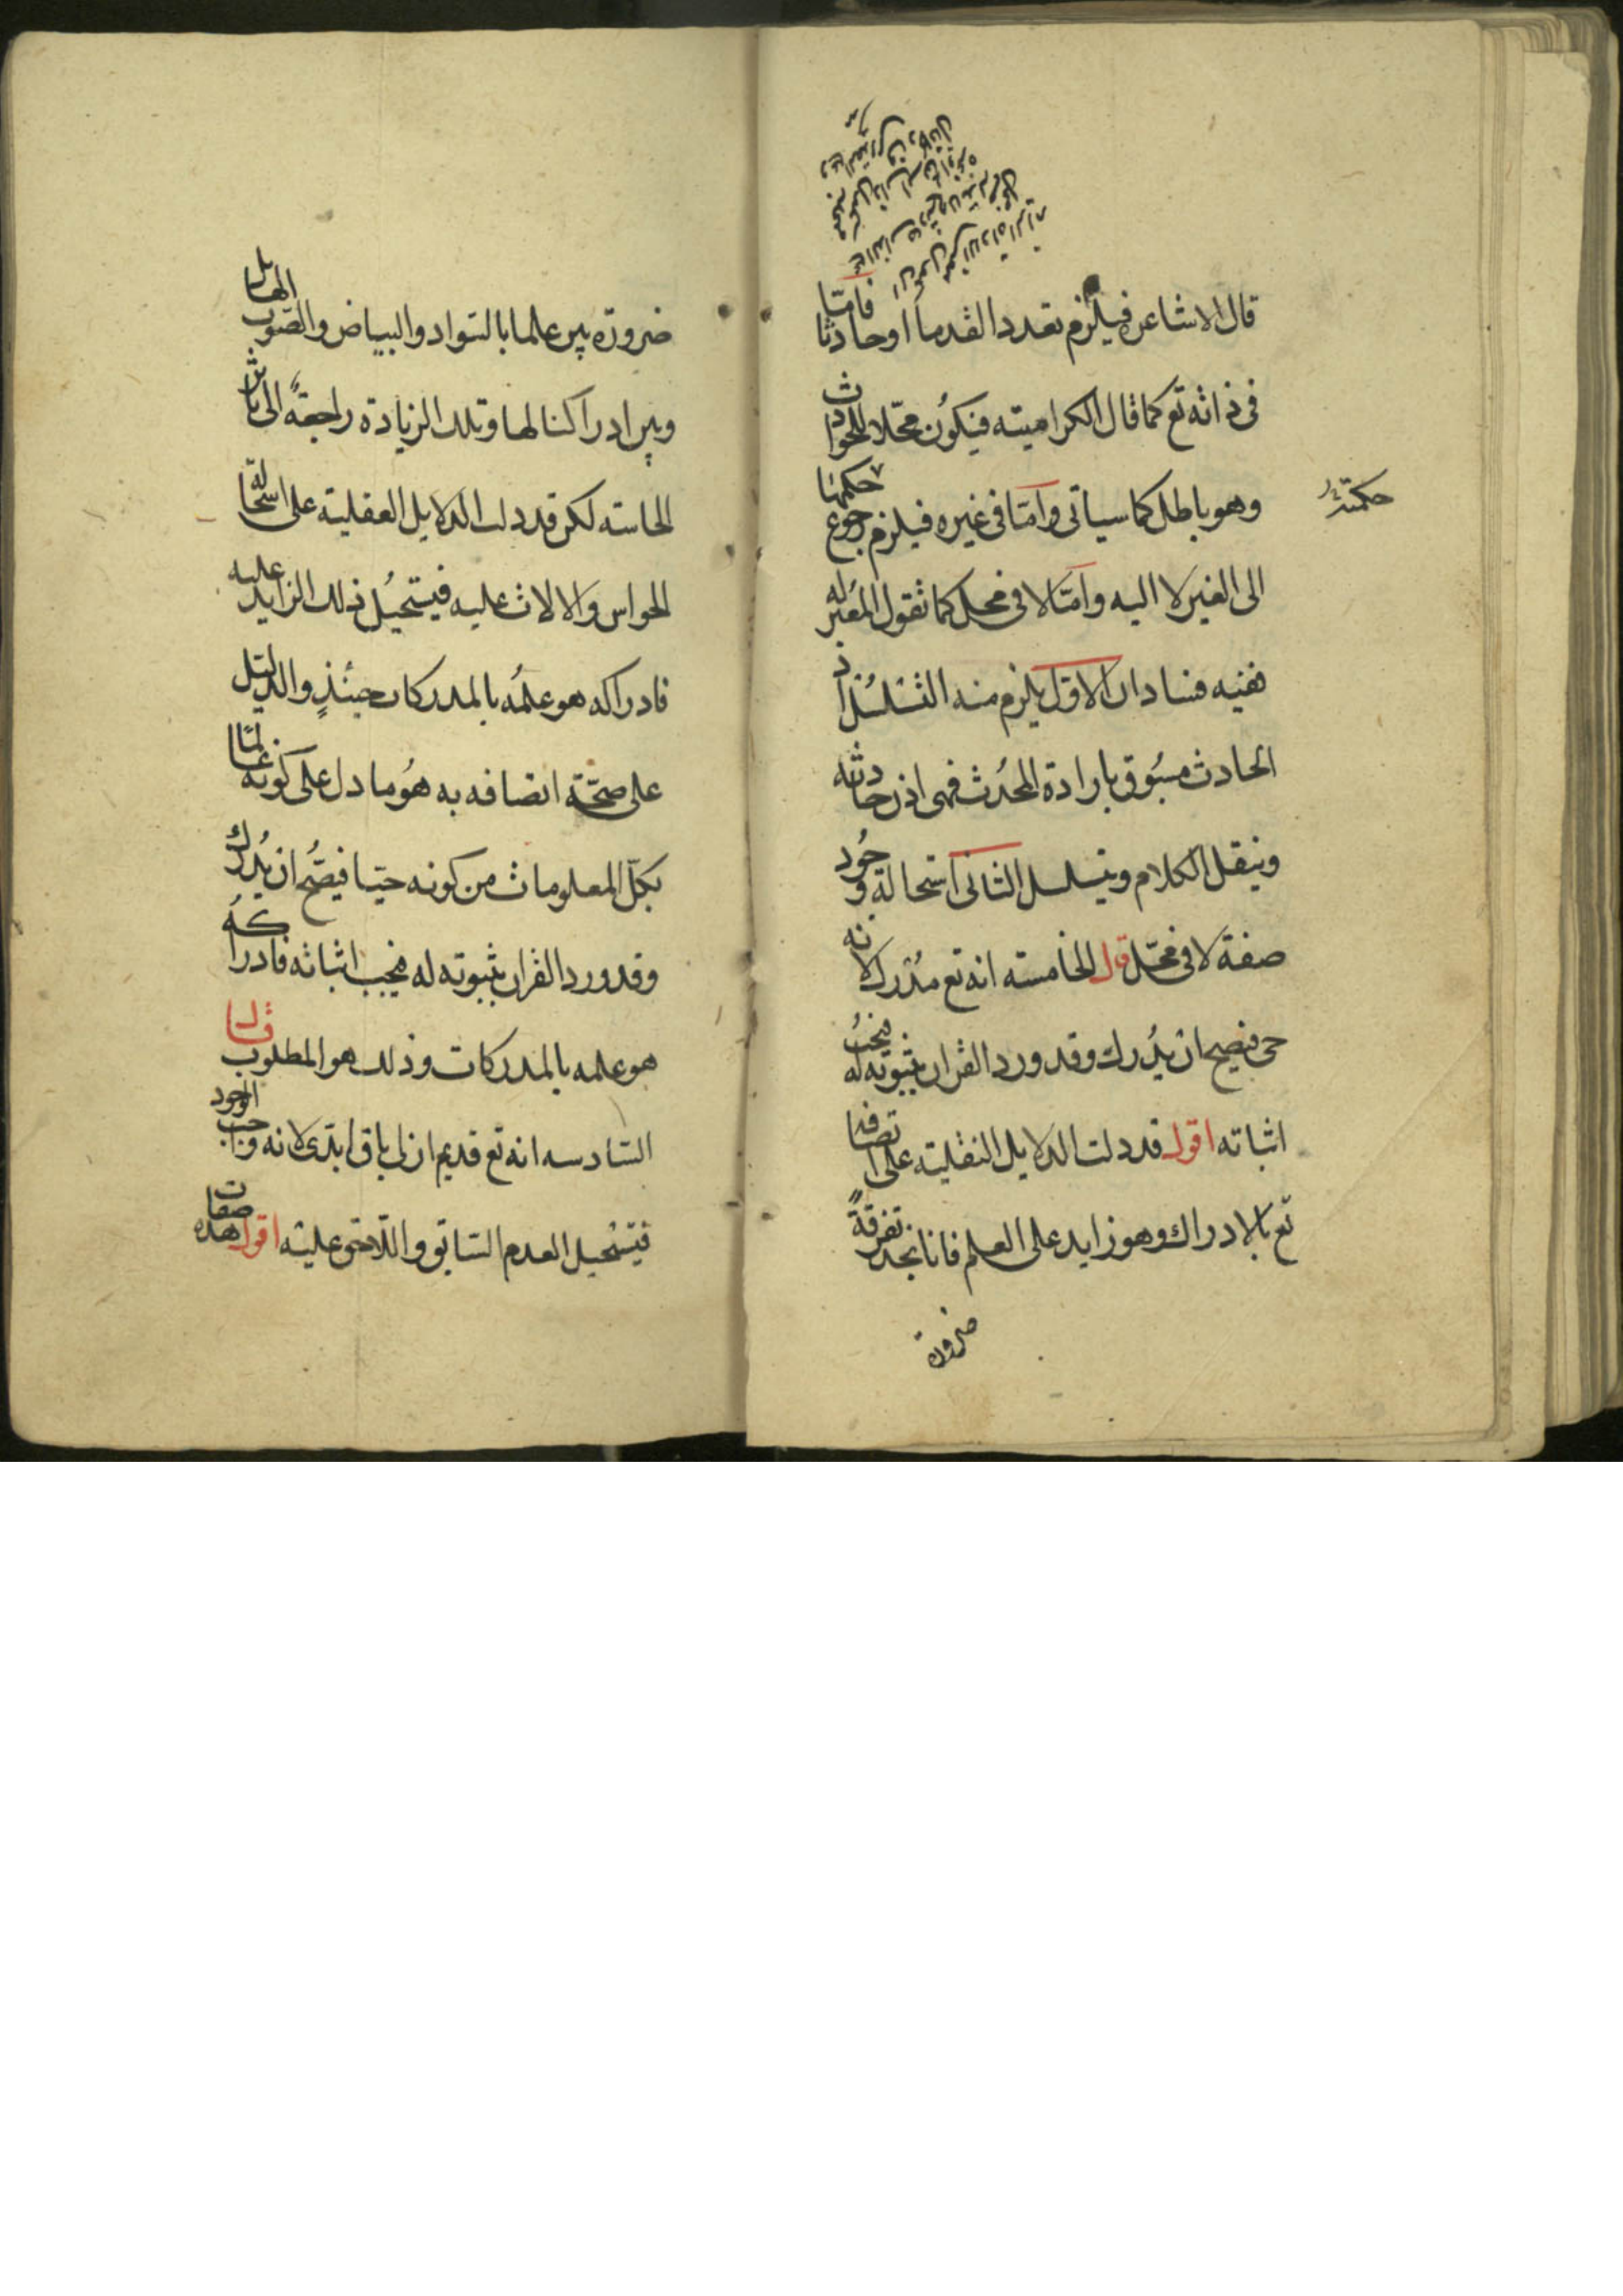 قال الاشاعره فيلزم تعدد القدما اوحادثا فامّا
فى ذاته تع كما قال الكراميته فيكون محّلا للحوادث
وهو باطل كما سياتى وامّا فى غيره فيلزم رجوع حكمها
حكمته
الى الغير لا اليه وامّا لا فى محل كما تقول المعتزله
ففيه فسادان الاوّل يلزم منه التسلسل اذ
الحادث مسبوق بارادة المحدث فهى اذن حادثه
وينقل الكلام ويتسلسل الثانى استحالة وجود
صفة لا فى محّل قال الخامسته انه تع مدرك لانه
حى فيصح ان يدرك وقد ورد القران بثبوته له فيجب
اثباته اقول قد دلت الدلايل النقليته على اتصافه
تع بالادراك وهو زايد على العلم فانا نجد تفرقةً
ضرورة
ضرورة بين علمنا بالسّواد والبياض والصّوت الهايل
وبين ادراكنا لها وتلك الزيادة راجعةً الى تاثر
الحاسته لكن قد دلت الدلايل العقليته على استحالة
الحواس والالات عليه فيستحيل ذلك الزايد عليه
فادراكه هو علمه بالمدركات حينئذٍ والدليل
على صحّة اتصافه به هو ما دل على كونه عالما
بكلّ المعلومات من كونه حيّا فيصّح ان يدرك
وقد ورد القران بثبوته له فيجب اثباته فادراكه
هو علمه بالمدركات وذلك هو المطلوب قال
السّادسه انه تع قديم ازلى باق ابدى لانه واجب الوجود
فيستحيل العدم السّابق واللّاحق عليه اقول هذه صفات